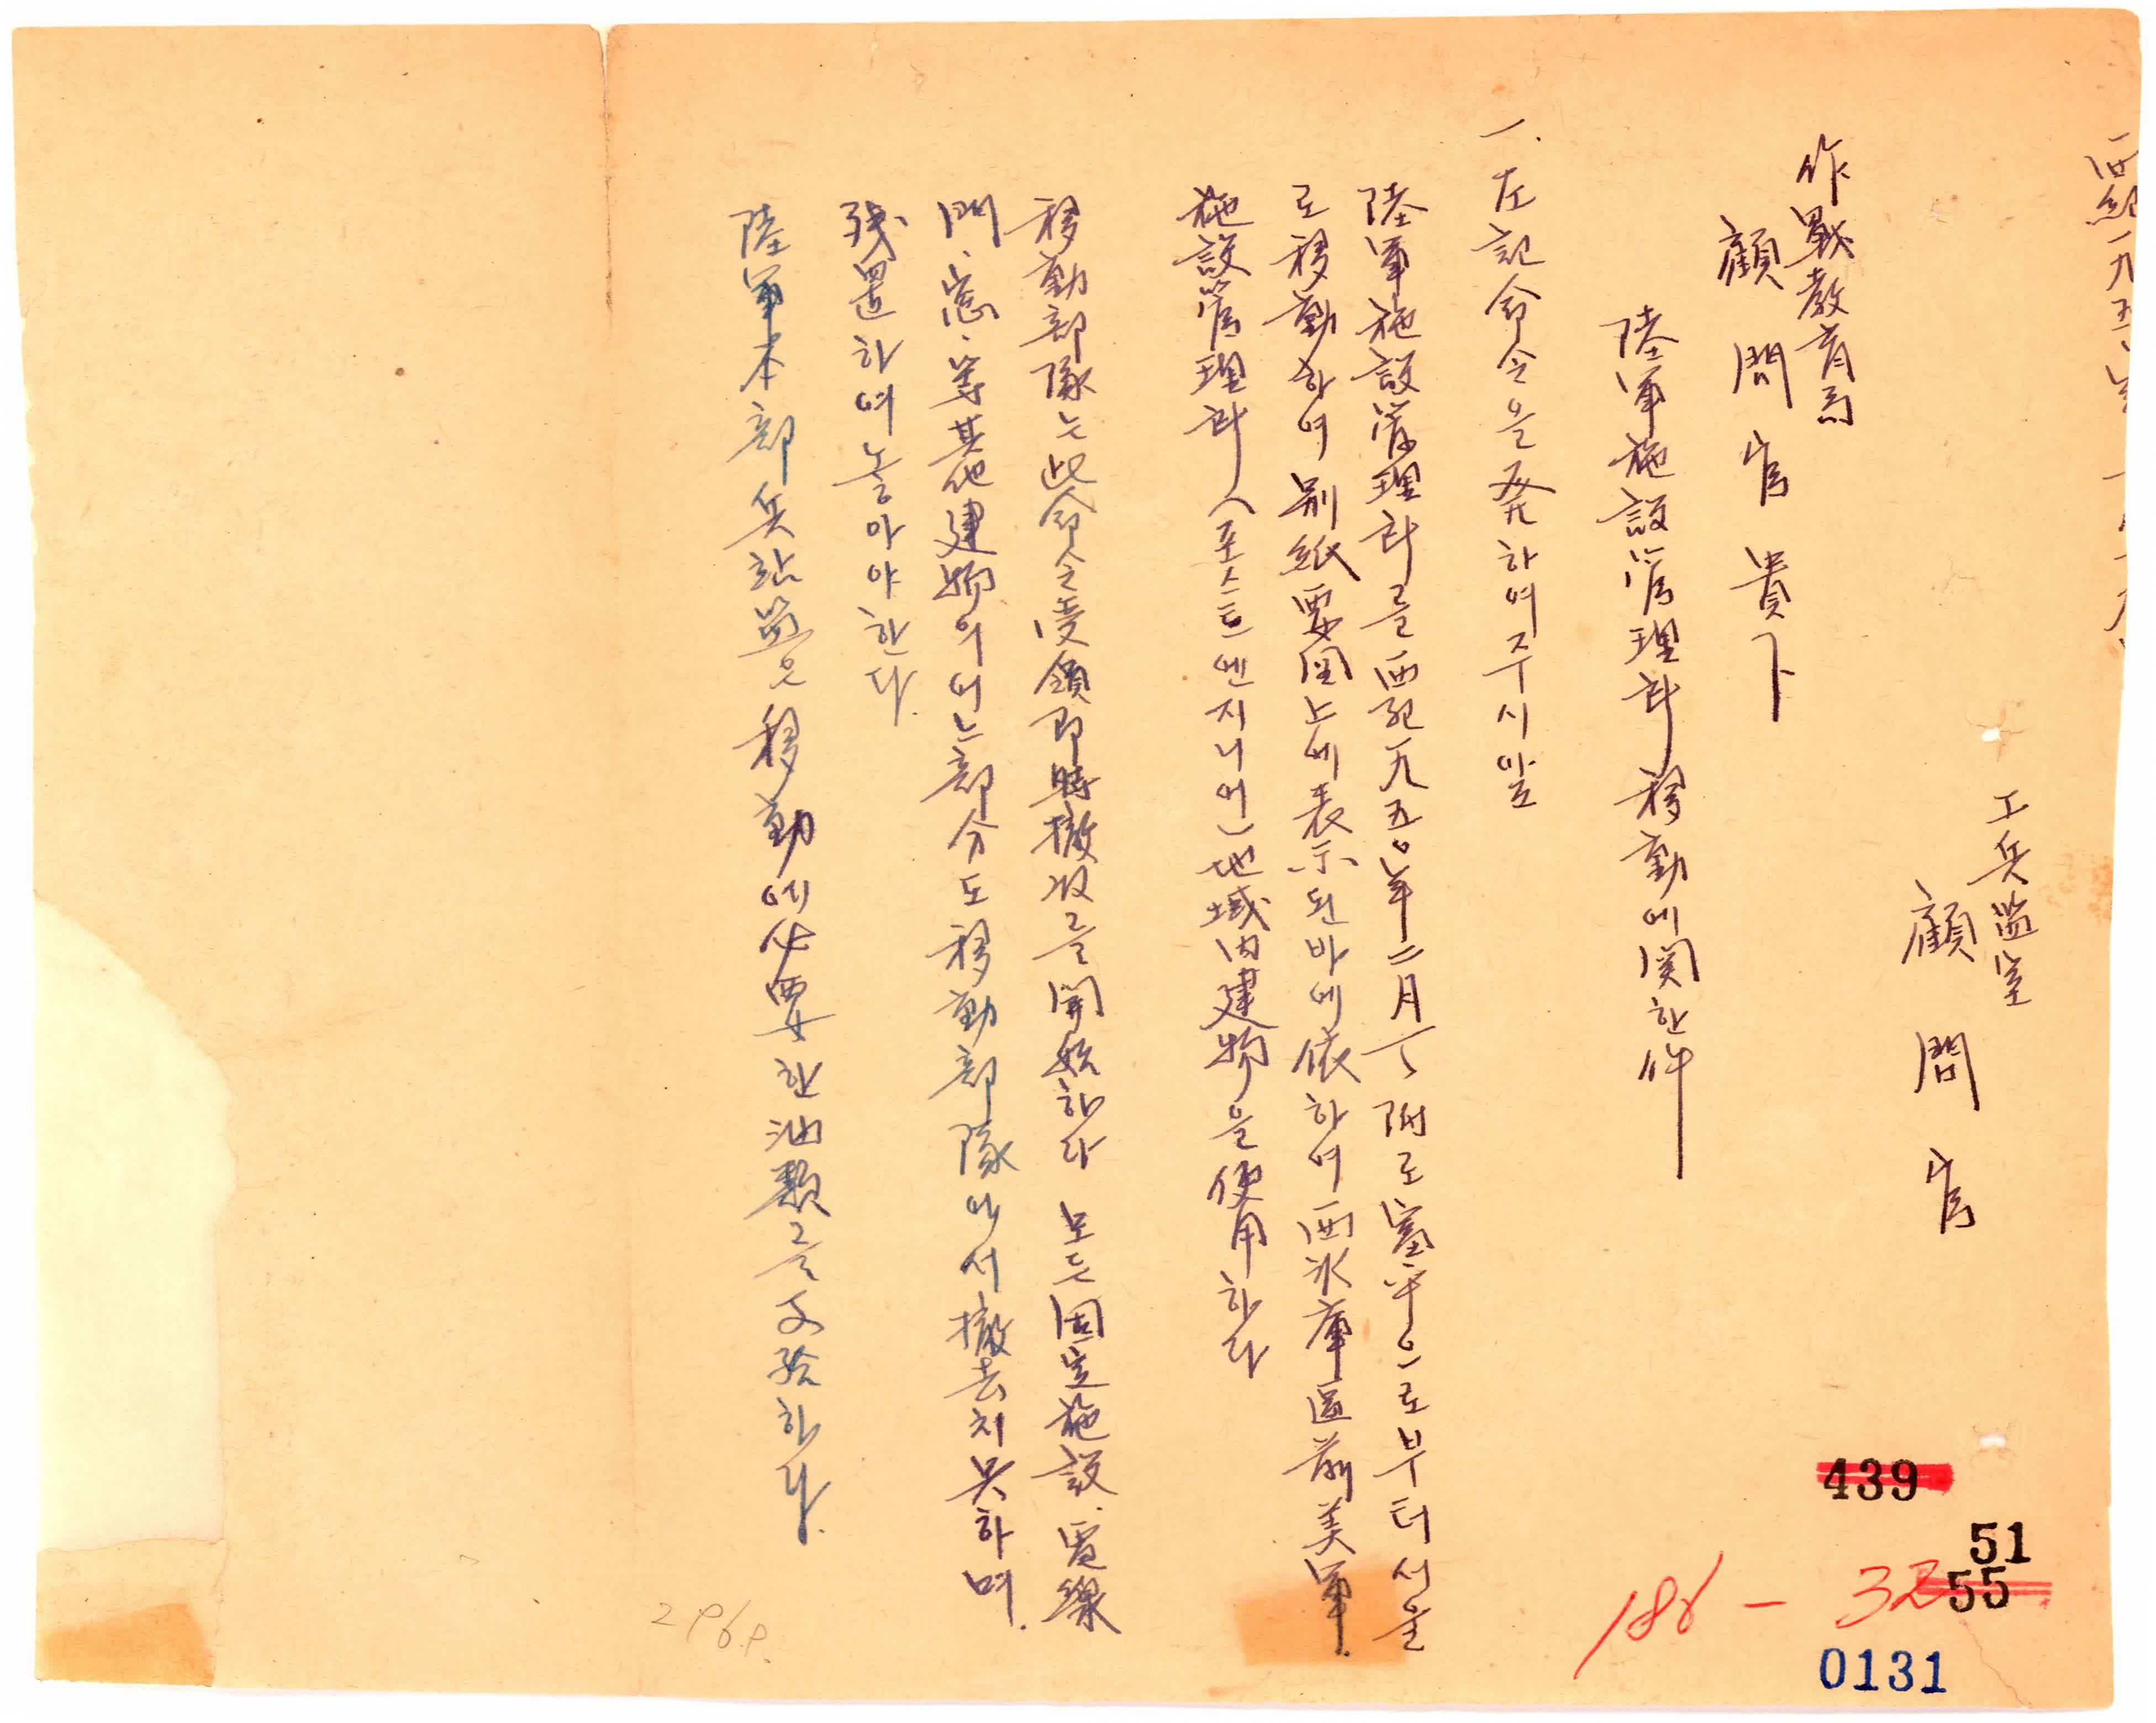 西紀一九五
工兵監室
顧問官
作戰教育局
顧問官 貴下
陸軍施設管理科 移動에 関한 件
一. 左記 命令을 発하여 주시압
陸軍施設管理科를 西紀一九五〇年二月一 附로 富平으로부터 서울
로 移動하여 別紙要図上에 表示된 바에 依하여 西氷庫區 前 美軍.
施設管理科 (포스트 엔지니어) 地域内 建物을 使用하다
移動部隊는 此 命令 受領 即時 撤收를 開始하다 모든 固定施設. 電線
門. 窓. 等 其他 建物의 어느 部分도 移動部隊에서 撤去치 못하며.
残置하여 놓아야 한다.
陸軍本部 兵站監은 移動에 必要한 油類를 支給하다.
439
51
55
186 -
0131
296P.